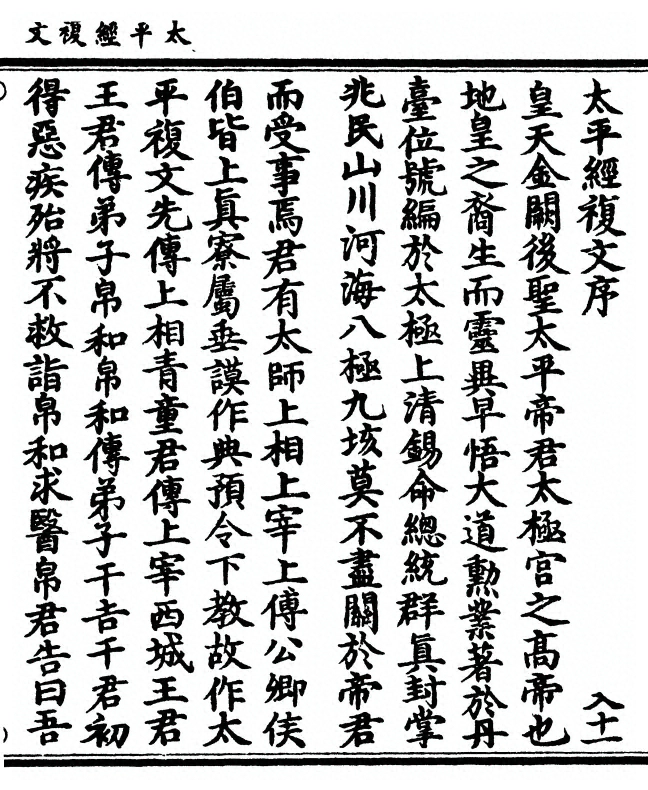 太平經複文
太平經複文序
入十一
皇天金闕後聖太平帝君太極宮之髙帝也
地皇之裔生而靈異早悟大道勲業著於丹
臺位號編於太極上清錫命總統群眞封掌
兆民山川河海八極九垓莫不盡關於帝君
而受事焉君有太師上相上宰上傅公卿侯
伯皆上眞寮屬垂謨作典預令下教故作太
平複文先傳上相青童君傳上宰西城王君
王君傳弟子帛和帛和傳弟子干吉干君初
得惡疾殆將不救詣帛和求醫帛君告曰吾